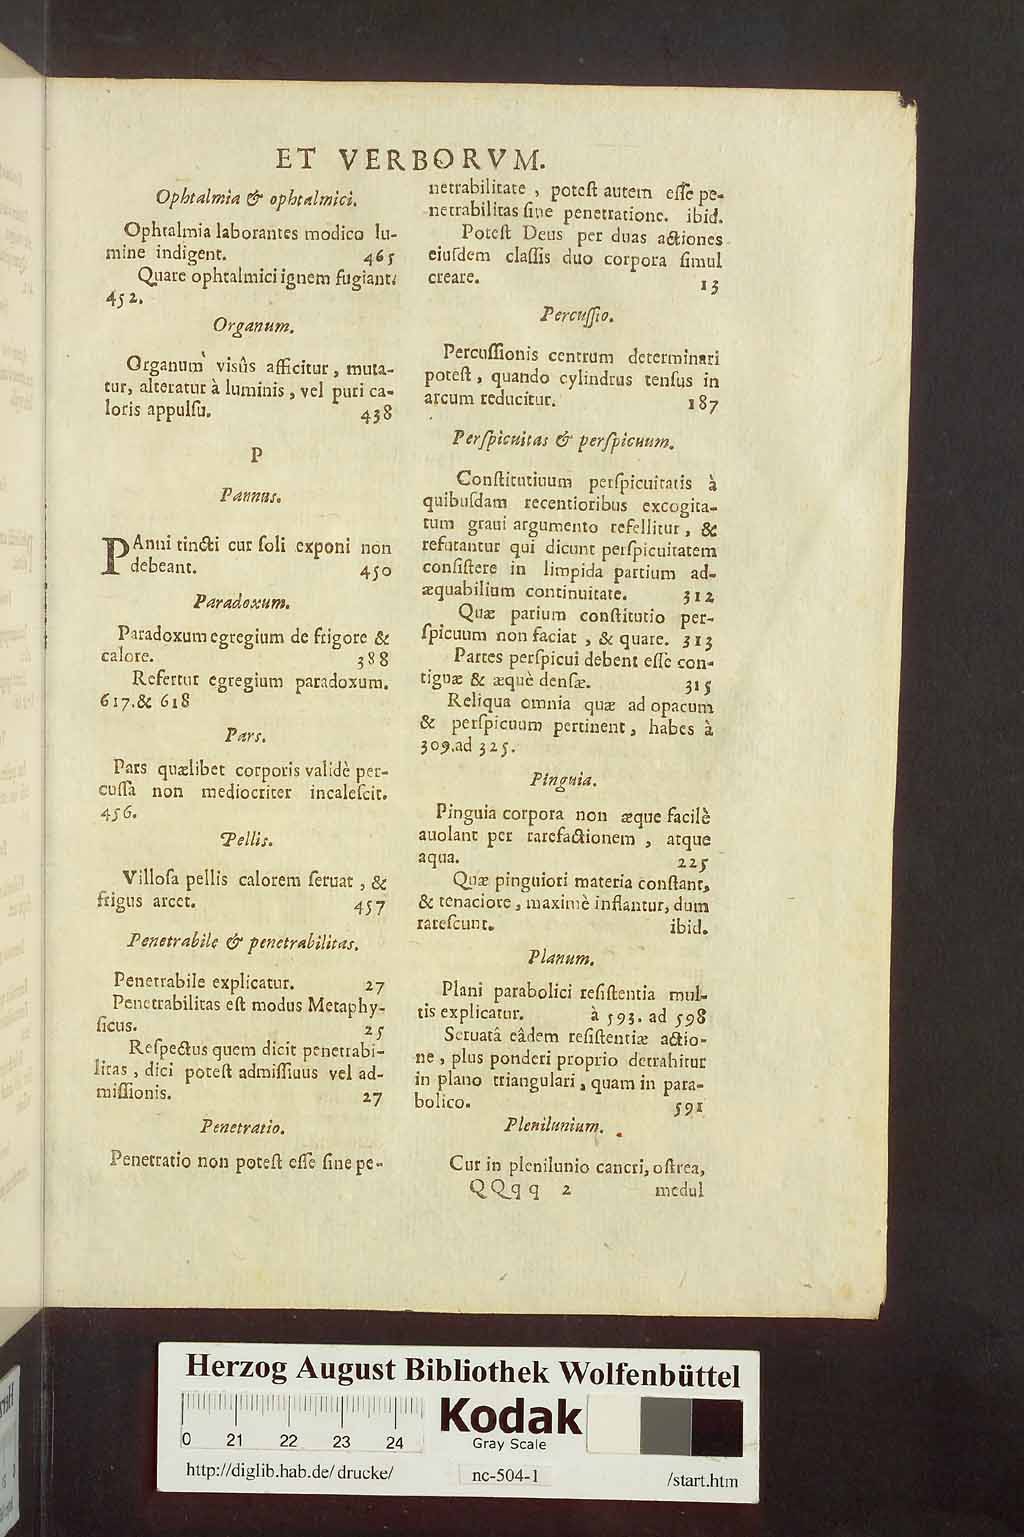 ET VERBORVM.
Ophtalmia & ophtalmici.
Ophtalmia laborantes modico lu-
mine indigent. 465
Quare ophtalmici ignem fugiant.
452.
Organum.
Organum visûs afficitur, muta-
tur, alteratur à luminis, vel puri ca-
loris appulſu. 438
P
Pannus.
PAnni tincti cur ſoli exponi non
debeant. 450
Paradoxum.
Paradoxum egregium de frigore &
calore. 388
Refertur egregium paradoxum.
617.& 618
Pars.
Pars quælibet corporis validè per-
cuſſa non mediocriter incaleſcit.
456.
Pellis.
Villoſa pellis calorem ſeruat, &
frigus arcet. 457
Penetrabile & penetrabilitas.
Penetrabile explicatur. 27
Penetrabilitas eſt modus Metaphy-
ſicus. 25
Reſpectus quem dicit penetrabi-
litas, dici poteſt admiſſiuus vel ad-
miſſionis. 27
Penetratio.
Penetratio non poteſt eſſe ſine pe-
netrabilitate, poteſt autem eſſe pe-
netrabilitas ſine penetratione. ibid.
Poteſt Deus per duas actiones
eiuſdem claſſis duo corpora ſimul
creare. 13
Percuſſio.
Percuſſionis centrum determinari
poteſt, quando cylindrus tenſus in
arcum reducitur. 187
Perſpicuitas & perſpicuum.
Conſtitutiuum perſpicuitatis à
quibuſdam recentioribus excogita-
tum graui argumento refellitur, &
refutantur qui dicunt perſpicuitatem
conſiſtere in limpida partium ad-
æquabilium continuitate. 312
Quæ partium conſtitutio per-
ſpicuum non faciat, & quare. 313
Partes perſpicui debent eſſe con-
tiguæ & æquè denſæ. 315
Reliqua omnia quæ ad opacum
& perſpicuum pertinent, habes à
309.ad 325.
Pinguia.
Pinguia corpora non æque facilè
auolant per rarefactionem, atque
aqua. 225
Quæ pinguiori materia conſtant,
& tenaciore, maximè inflantur, dum
rareſcunt. ibid.
Planum.
Plani parabolici reſiſtentia mul-
tis explicatur. à 593. ad 598
Seruatâ eâdem reſiſtentiæ actio-
ne, plus ponderi proprio detrahitur
in plano triangulari, quam in para-
bolico. 591
Plenilunium.
Cur in plenilunio cancri, oſtrea,
QQqq 2 medul
Herzog August Bibliothek Wolfenbüttel
0 21 22 23 24
Kodak
Gray Scale
http://diglib.hab.de/drucke/ nc-504-1 /start.htm